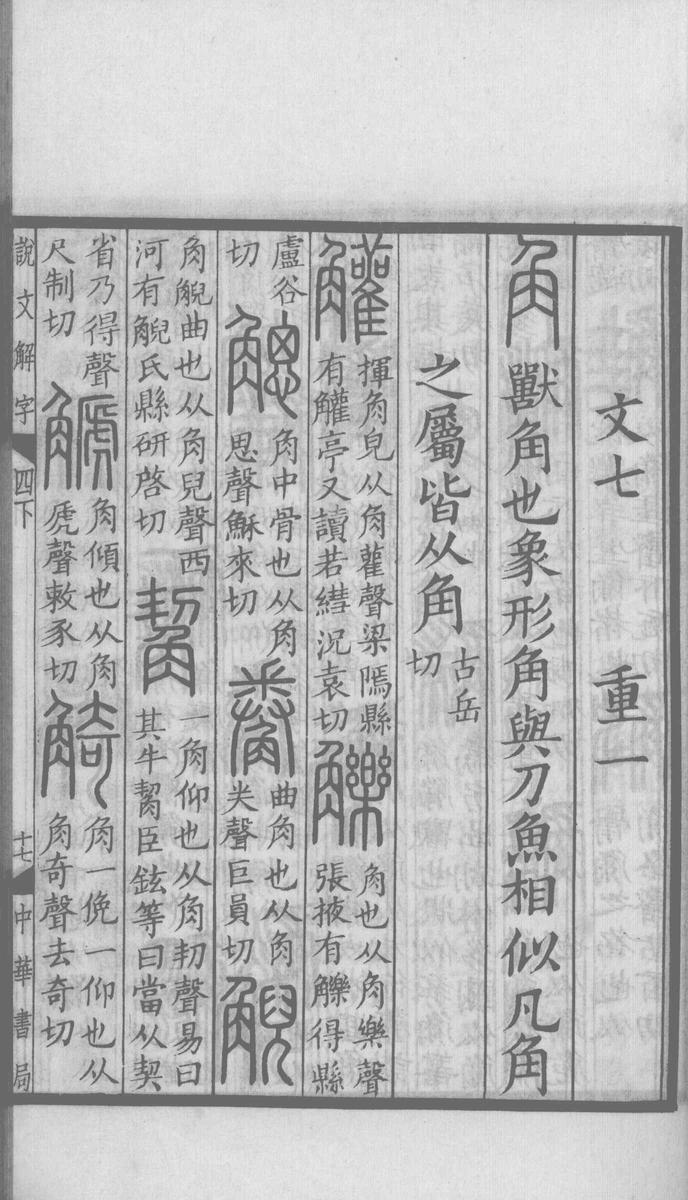 文七　重一
角 獸角也象形角與刀魚相似凡角
之屬皆从角 古岳切
䚭 揮角皃从角雚聲梁縣
有䚭亭又讀若況袁切
觻 角也从角樂聲
張掖有觻得縣
盧谷
切
䚡 角中骨也从角
思聲穌來切
觠 曲角也从角
𢍏聲巨員切
觬
角觬曲也从角兒聲西
河有觬氏縣研啓切
觢 一角仰也从角㓞聲易曰
其牛觢臣鉉等曰當从契
省乃得聲
尺制切
䚦 角傾也从角
虒聲敕豕切
觭 角一俛一仰也从
角奇聲去奇切
說文解字 四下 十七 中華書局